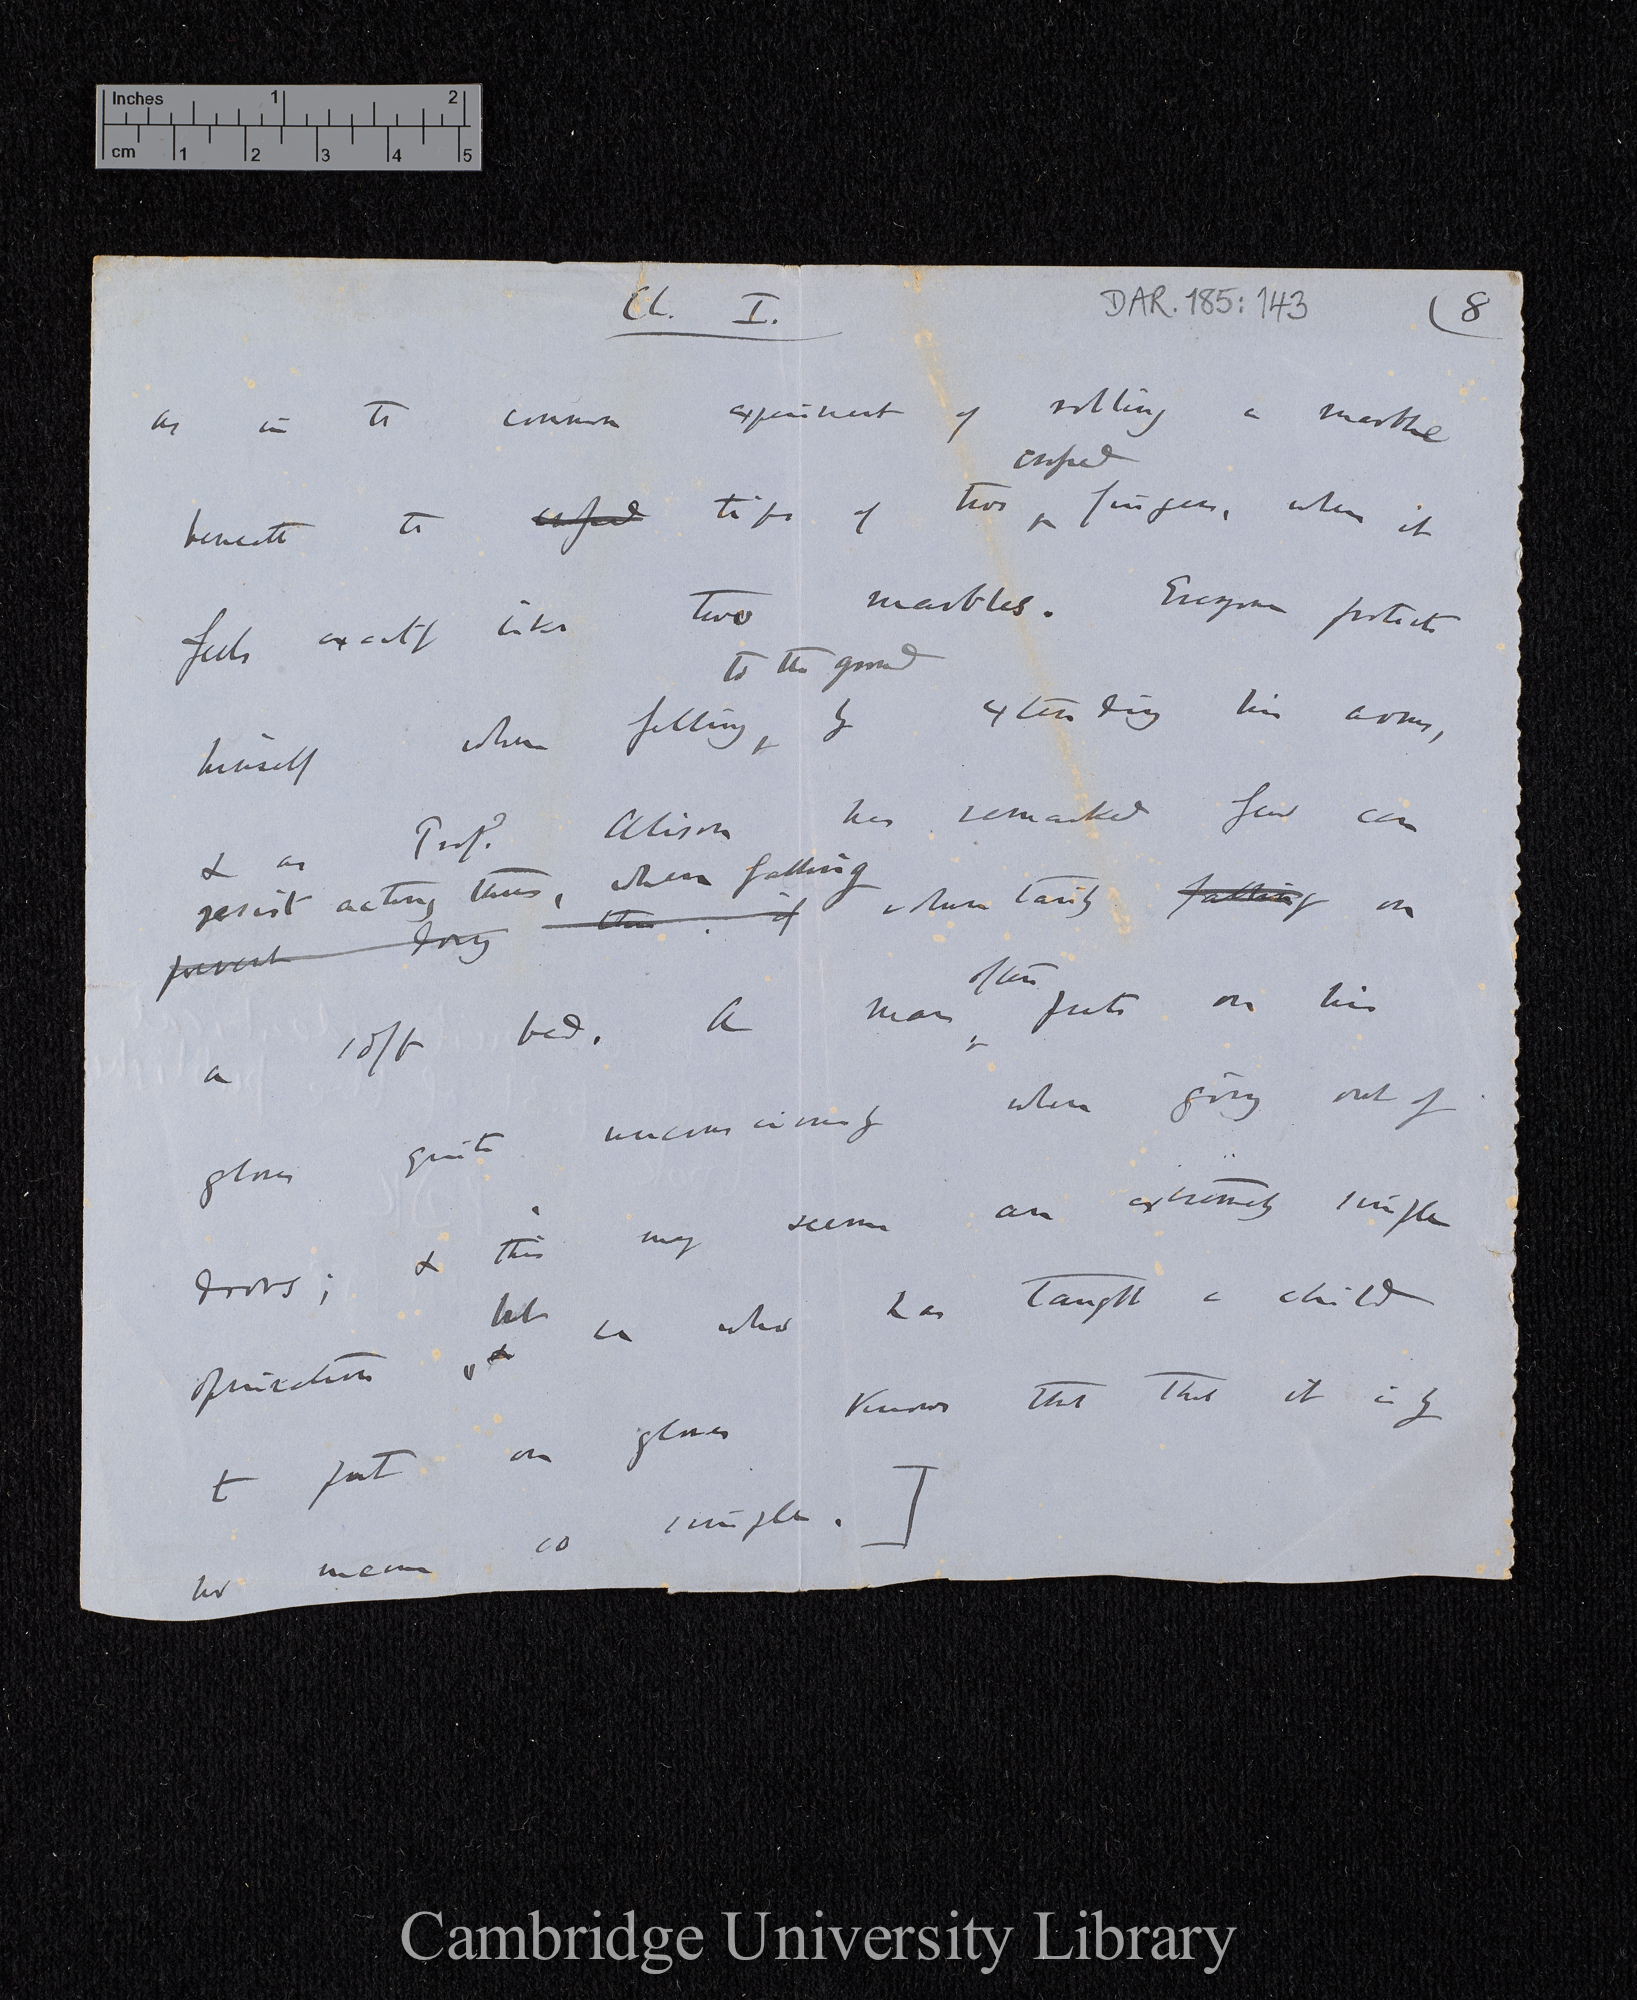 Inches 1 2
cm 1 2 3 4 5
Ch. I.
DAR. 185: 143
(8
as in the common experiment of rolling a marble
crossed
beneath the crossed tips of two fingers, when it
feels exactly like two marbles. Everyone protects
to the ground
himself when falling, by extending his arms,
& as Prof. Alison has remarked few can
resist acting thus, when falling
prevent doing this if voluntarily falling on
often
a soft bed. A man puts on his
gloves quite unconsciously when going out of
doors; & this may seem an extremely simple
but
operation & he who has taught a child
to put on gloves knows that that it is by
no means so simple.]
Cambridge University Library